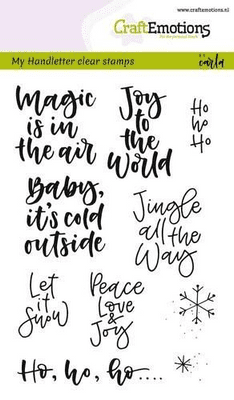 www.craftemotions.nl
CraftEmotions
My Handletter clear stamps
by carla
Magic
is in
the air
Joy
to
the
World
Ho
ho
Ho
Baby,
it's cold
outside
Jingle
all the
Way
Let
it
Snow
Peace
Love
&
Joy
Ho, ho, ho....